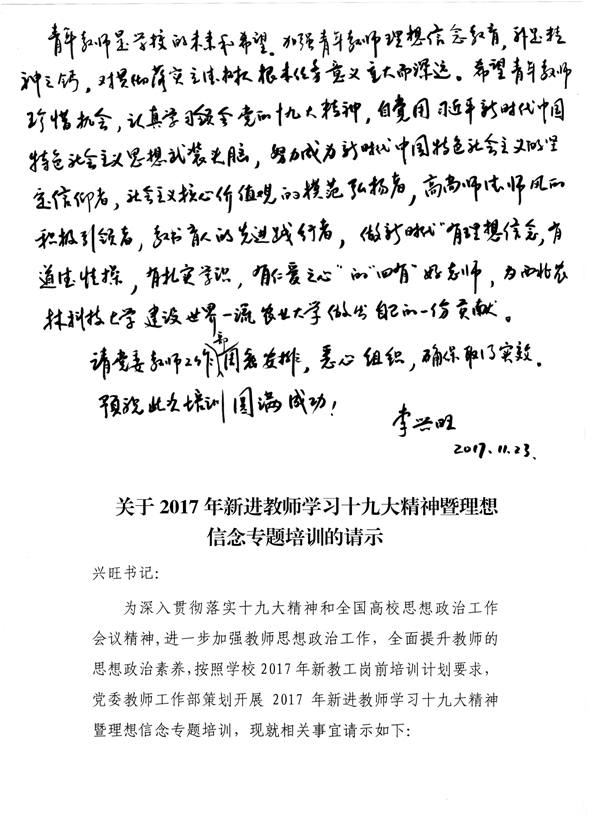 青年教师是学校的未来和希望。加强青年教师理想信念教育，补足精
神之钙，对贯彻落实立德树人根本任务意义重大而深远。希望青年教师
珍惜机会，认真学习领会党的十九大精神，自觉用习近平新时代中国
特色社会主义思想武装头脑，努力成为新时代中国特色社会主义的坚
定信仰者，社会主义核心价值观的模范弘扬者，高尚师德师风的
积极引领者，教书育人的先进践行者，做新时代“有理想信念，有
道德情操，有扎实学识，有仁爱之心”的“四有”好老师，为西北农
林科技大学建设世界一流农业大学做出自己的一份贡献。
请党委教师工作部周密安排，悉心组织，确保取得实效。
预祝此次培训圆满成功！
李兴旺
2017.11.23.
关于 2017 年新进教师学习十九大精神暨理想
信念专题培训的请示
兴旺书记：
为深入贯彻落实十九大精神和全国高校思想政治工作
会议精神，进一步加强教师思想政治工作，全面提升教师的
思想政治素养，按照学校 2017 年新教工岗前培训计划要求，
党委教师工作部策划开展 2017 年新进教师学习十九大精神
暨理想信念专题培训，现就相关事宜请示如下：